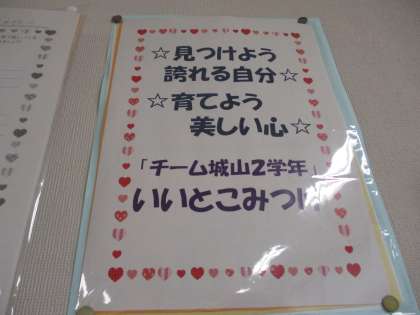 ☆見つけよう
誇れる自分☆
☆育てよう
美しい心☆
「チーム城山2学年」
いいとこみつけ